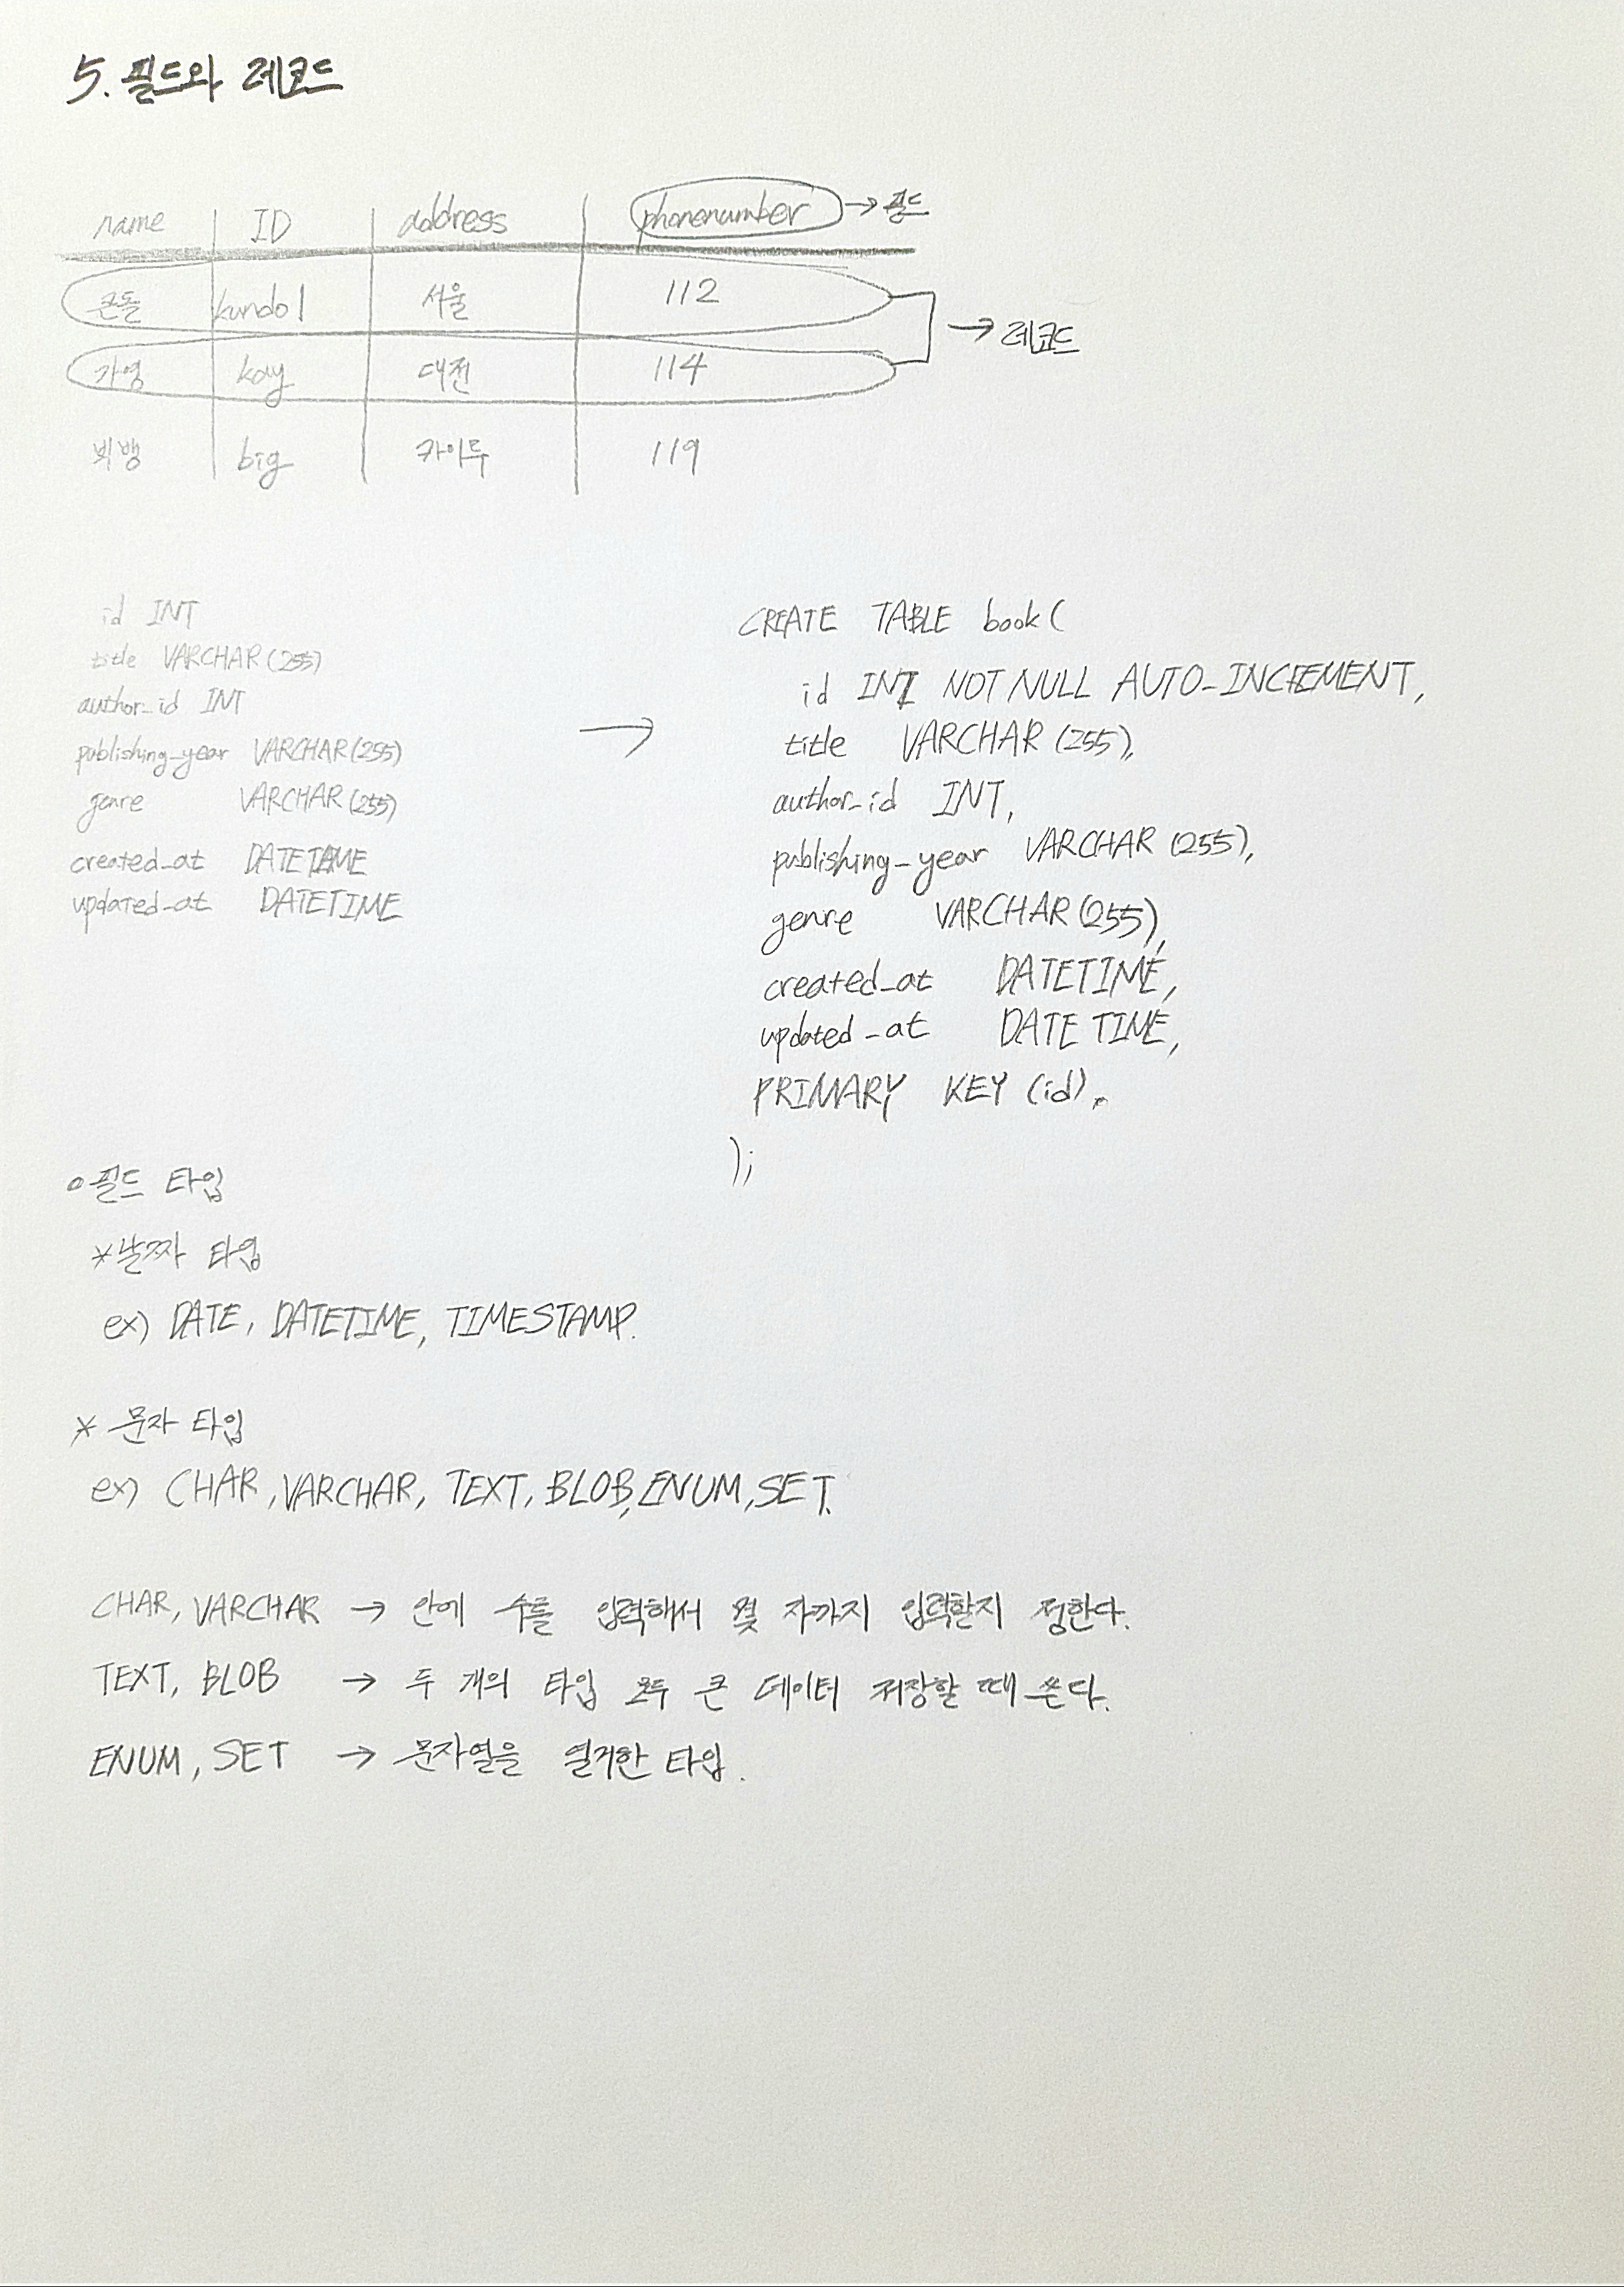 5. 필드와 레코드
name ID address phonenumber → 필드
큰돌 kundol 서울 112
→ 레코드
가영 kay 대전 114
빅뱅 big 카이루 119
id INT
title VARCHAR(255)
author_id INT
publishing_year VARCHAR(255)
genre VARCHAR(255)
created_at DATETIME
updated_at DATETIME
→
CREATE TABLE book(
id INT NOT NULL AUTO_INCREMENT,
title VARCHAR(255),
author_id INT,
publishing_year VARCHAR(255),
genre VARCHAR(255),
created_at DATETIME,
updated_at DATETIME,
PRIMARY KEY (id),
);
○필드 타입
*날짜 타입
ex) DATE, DATETIME, TIMESTAMP.
* 문자 타입
ex) CHAR, VARCHAR, TEXT, BLOB, ENUM, SET.
CHAR, VARCHAR → 안에 수를 입력해서 몇 자까지 입력할지 정한다.
TEXT, BLOB → 두 개의 타입 모두 큰 데이터 저장할 때 쓴다.
ENUM, SET → 문자열을 열거한 타입.